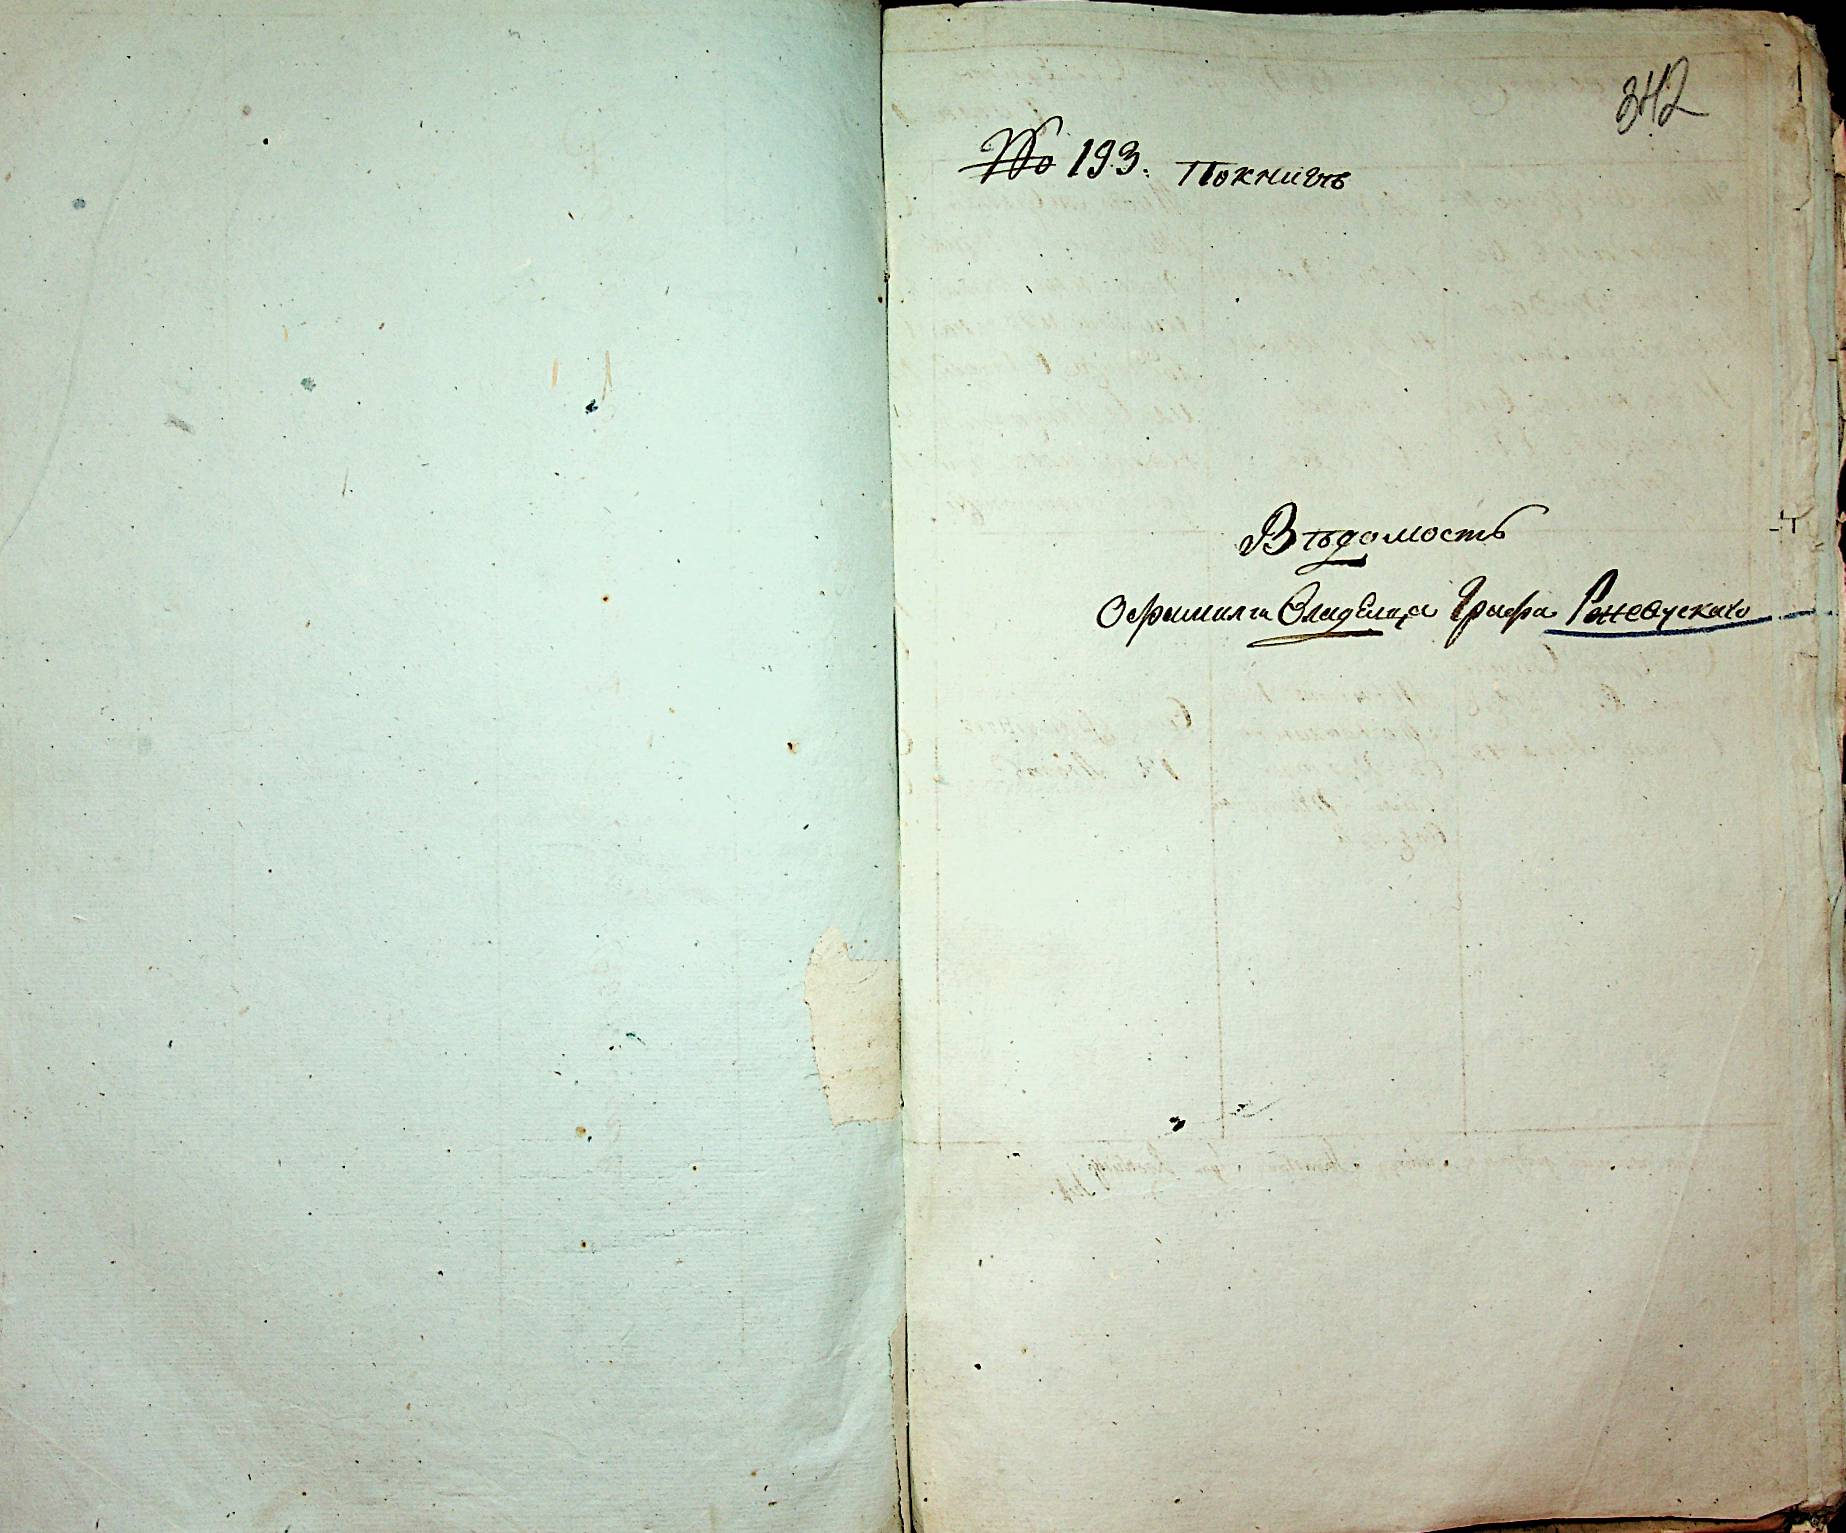 342
№ 193. По книгѣ
Вѣдомость
О фамиліи Владельца Графа Ржевускаго